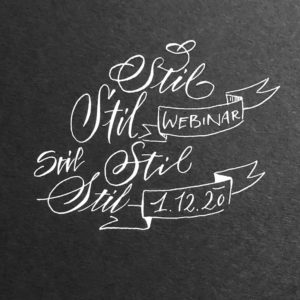 Stil
Stil WEBINAR
Stil Stil
Stil 1.12.20